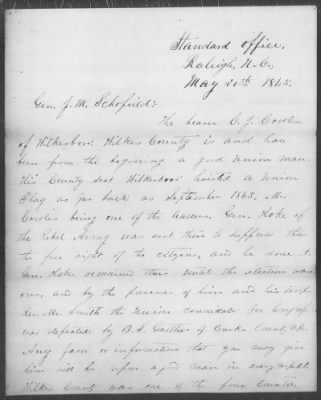 Standard office,
Raleigh, N.C.,
May 20th 1865.
Gen. J. M. Schofield:
The bearer C. J. Cowles
of Wilkesboro: Wilkes County is and has
been from the begining a good Union man.
His County seat Wilkesboro' hoisted a Union
Flag as far back as September 1863, Mr
Cowles being one of the leaders. Gen. Hoke
of the Rebel Army was sent there to suppress this
to free right of the citizens, and he done it.
Gen. Hoke remained there until the election was
over, and by the presence of him and his troops
Rev. Mr. Smith the Union candidate for Congress
was defeated by B. S. Gaither of Burke County
Any favor or information that you may give
him will be upon a good man in every respect
Wilkes County was one of the four Counties